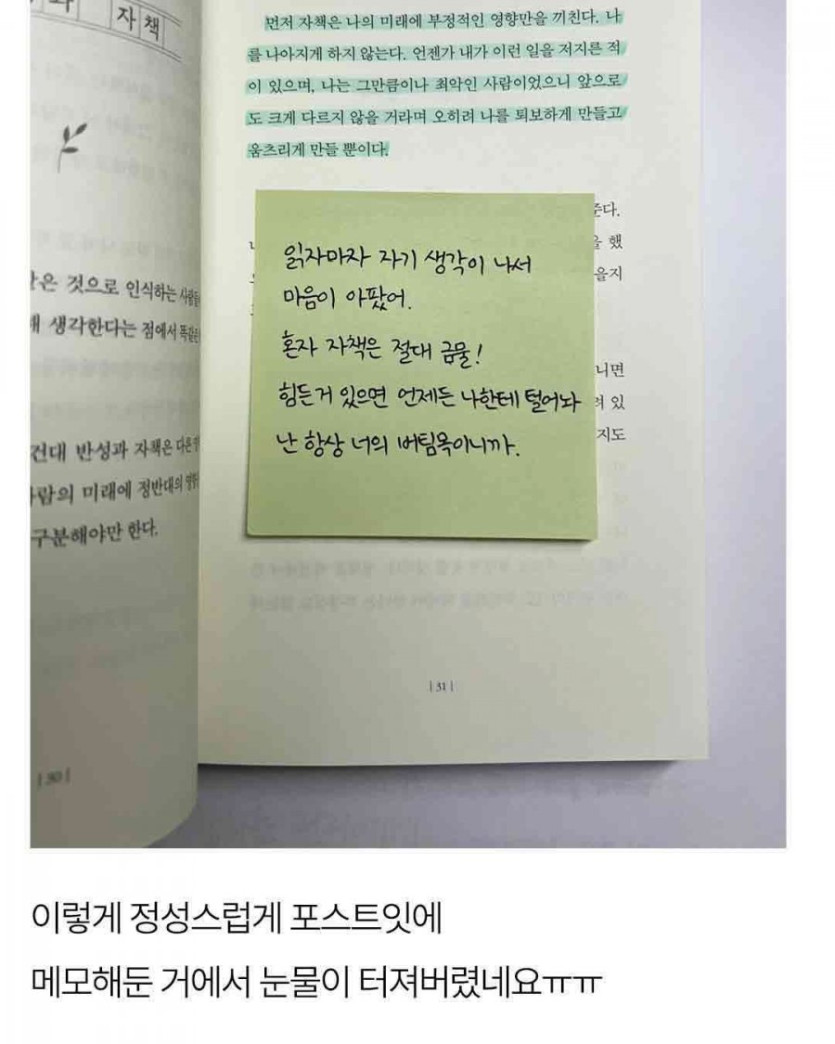 자책
간은 것으로 인식하는 사람들
해 생각한다는 점에서 똑같은
건대 반성과 자책은 다른
사람의 미래에 정반대의 영향
구분해야만 한다.
|30|
먼저 자책은 나의 미래에 부정적인 영향만을 끼친다. 나
를 나아지게 하지 않는다. 언젠가 내가 이런 일을 저지른 적
이 있으며, 나는 그만큼이나 최악인 사람이었으니 앞으로
도 크게 다르지 않을 거라며 오히려 나를 퇴보하게 만들고
움츠리게 만들 뿐이다.
준다.
을 했
을지
니면
려 있
지도
읽자마자 자기 생각이 나서
마음이 아팠어.
혼자 자책은 절대 금물!
힘든거 있으면 언제든 나한테 털어놔
난 항상 너의 버팀목이니까.
|31|
이렇게 정성스럽게 포스트잇에
메모해둔 거에서 눈물이 터져버렸네요ㅠㅠ